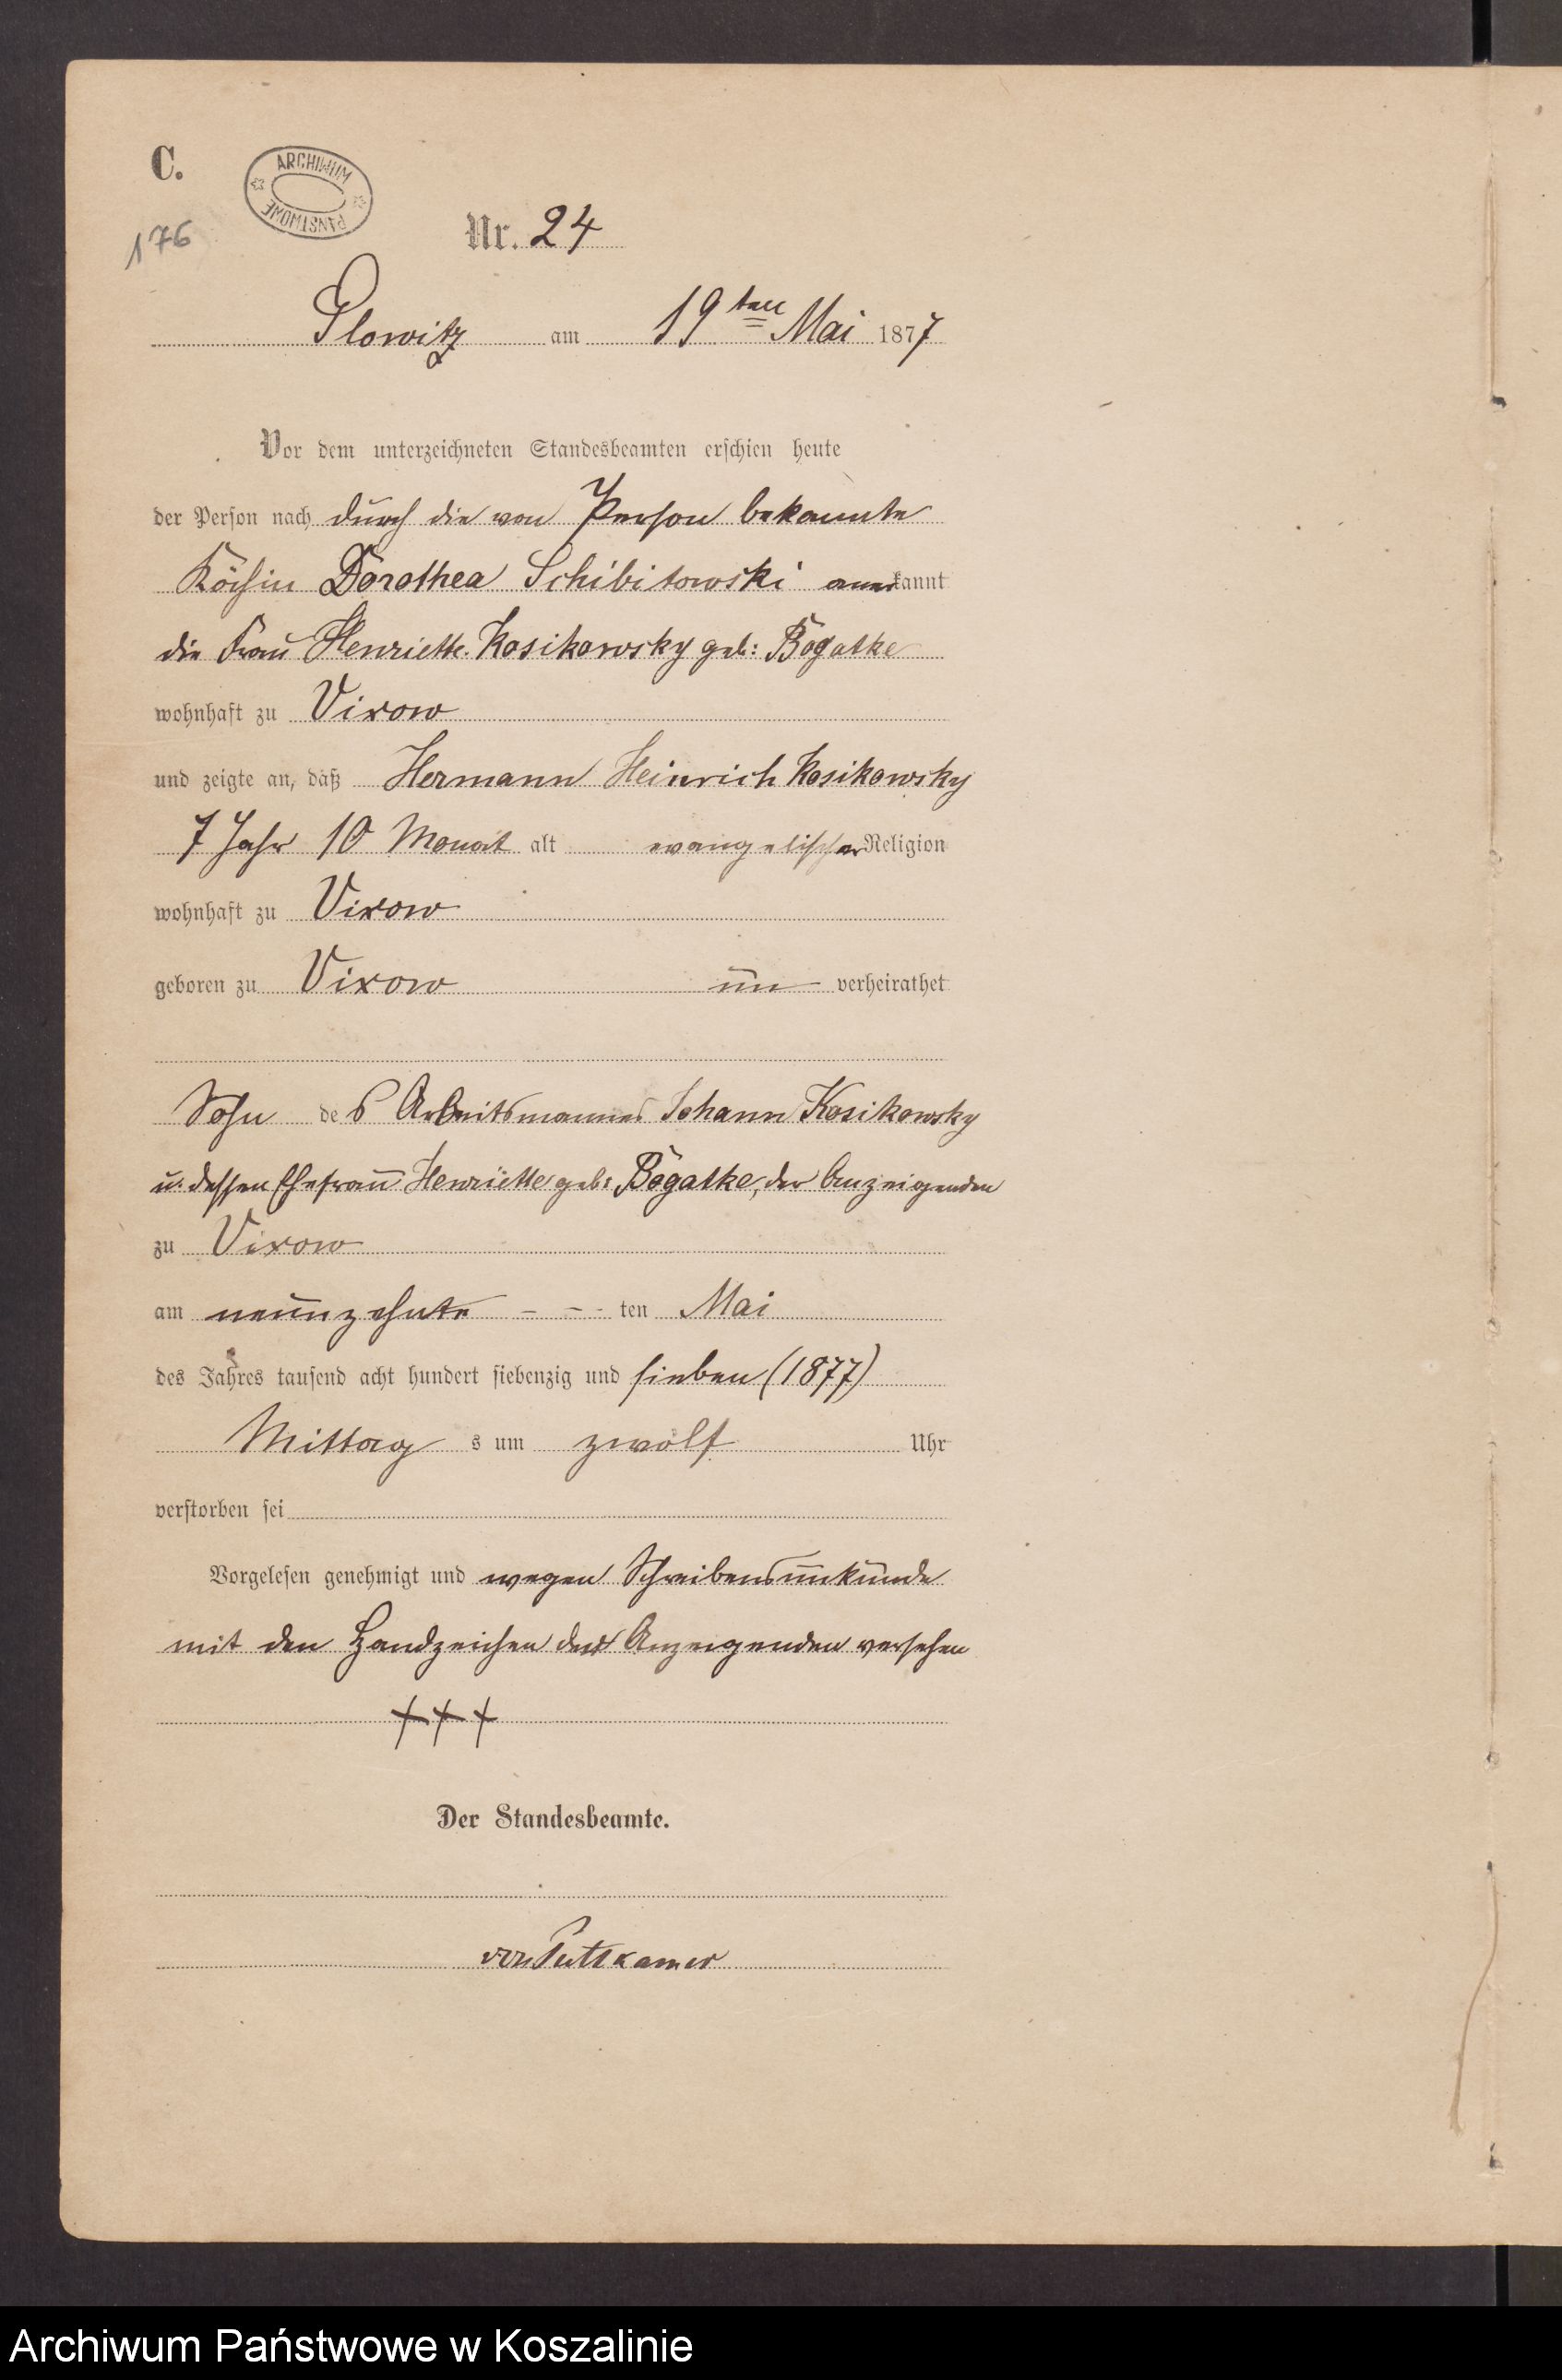 C.
ARCHIWUM PAŃSTWOWE
176
Nr. 24
Glowitz am 19ten Mai 1877
Vor dem unterzeichneten Standesbeamten erschien heute
der Person nach durch die von Person bekannte
Köchin Dorothea Schibitowski anerkannt
die Frau Henriette Kosikowsky geb: Bogatke
wohnhaft zu Vixow
und zeigte an, daß Hermann Heinrich Kosikowsky
7 Jahr 10 Monat alt evangelischer Religion
wohnhaft zu Vixow
geboren zu Vixow un verheirathet
Sohn des Arbeitsmannes Johann Kosikowsky
u. dessen Ehefrau Henriette geb: Bogatke, der Anzeigenden
zu Vixow
am neunzehnte - - - ten Mai
des Jahres tausend acht hundert siebenzig und sieben (1877)
Mittag s um zwölf Uhr
verstorben sei
Vorgelesen genehmigt und wegen Schreibensunkunde
mit den Handzeichen der Anzeigenden versehen
+++
Der Standesbeamte.
von Puttkamer
Archiwum Państwowe w Koszalinie